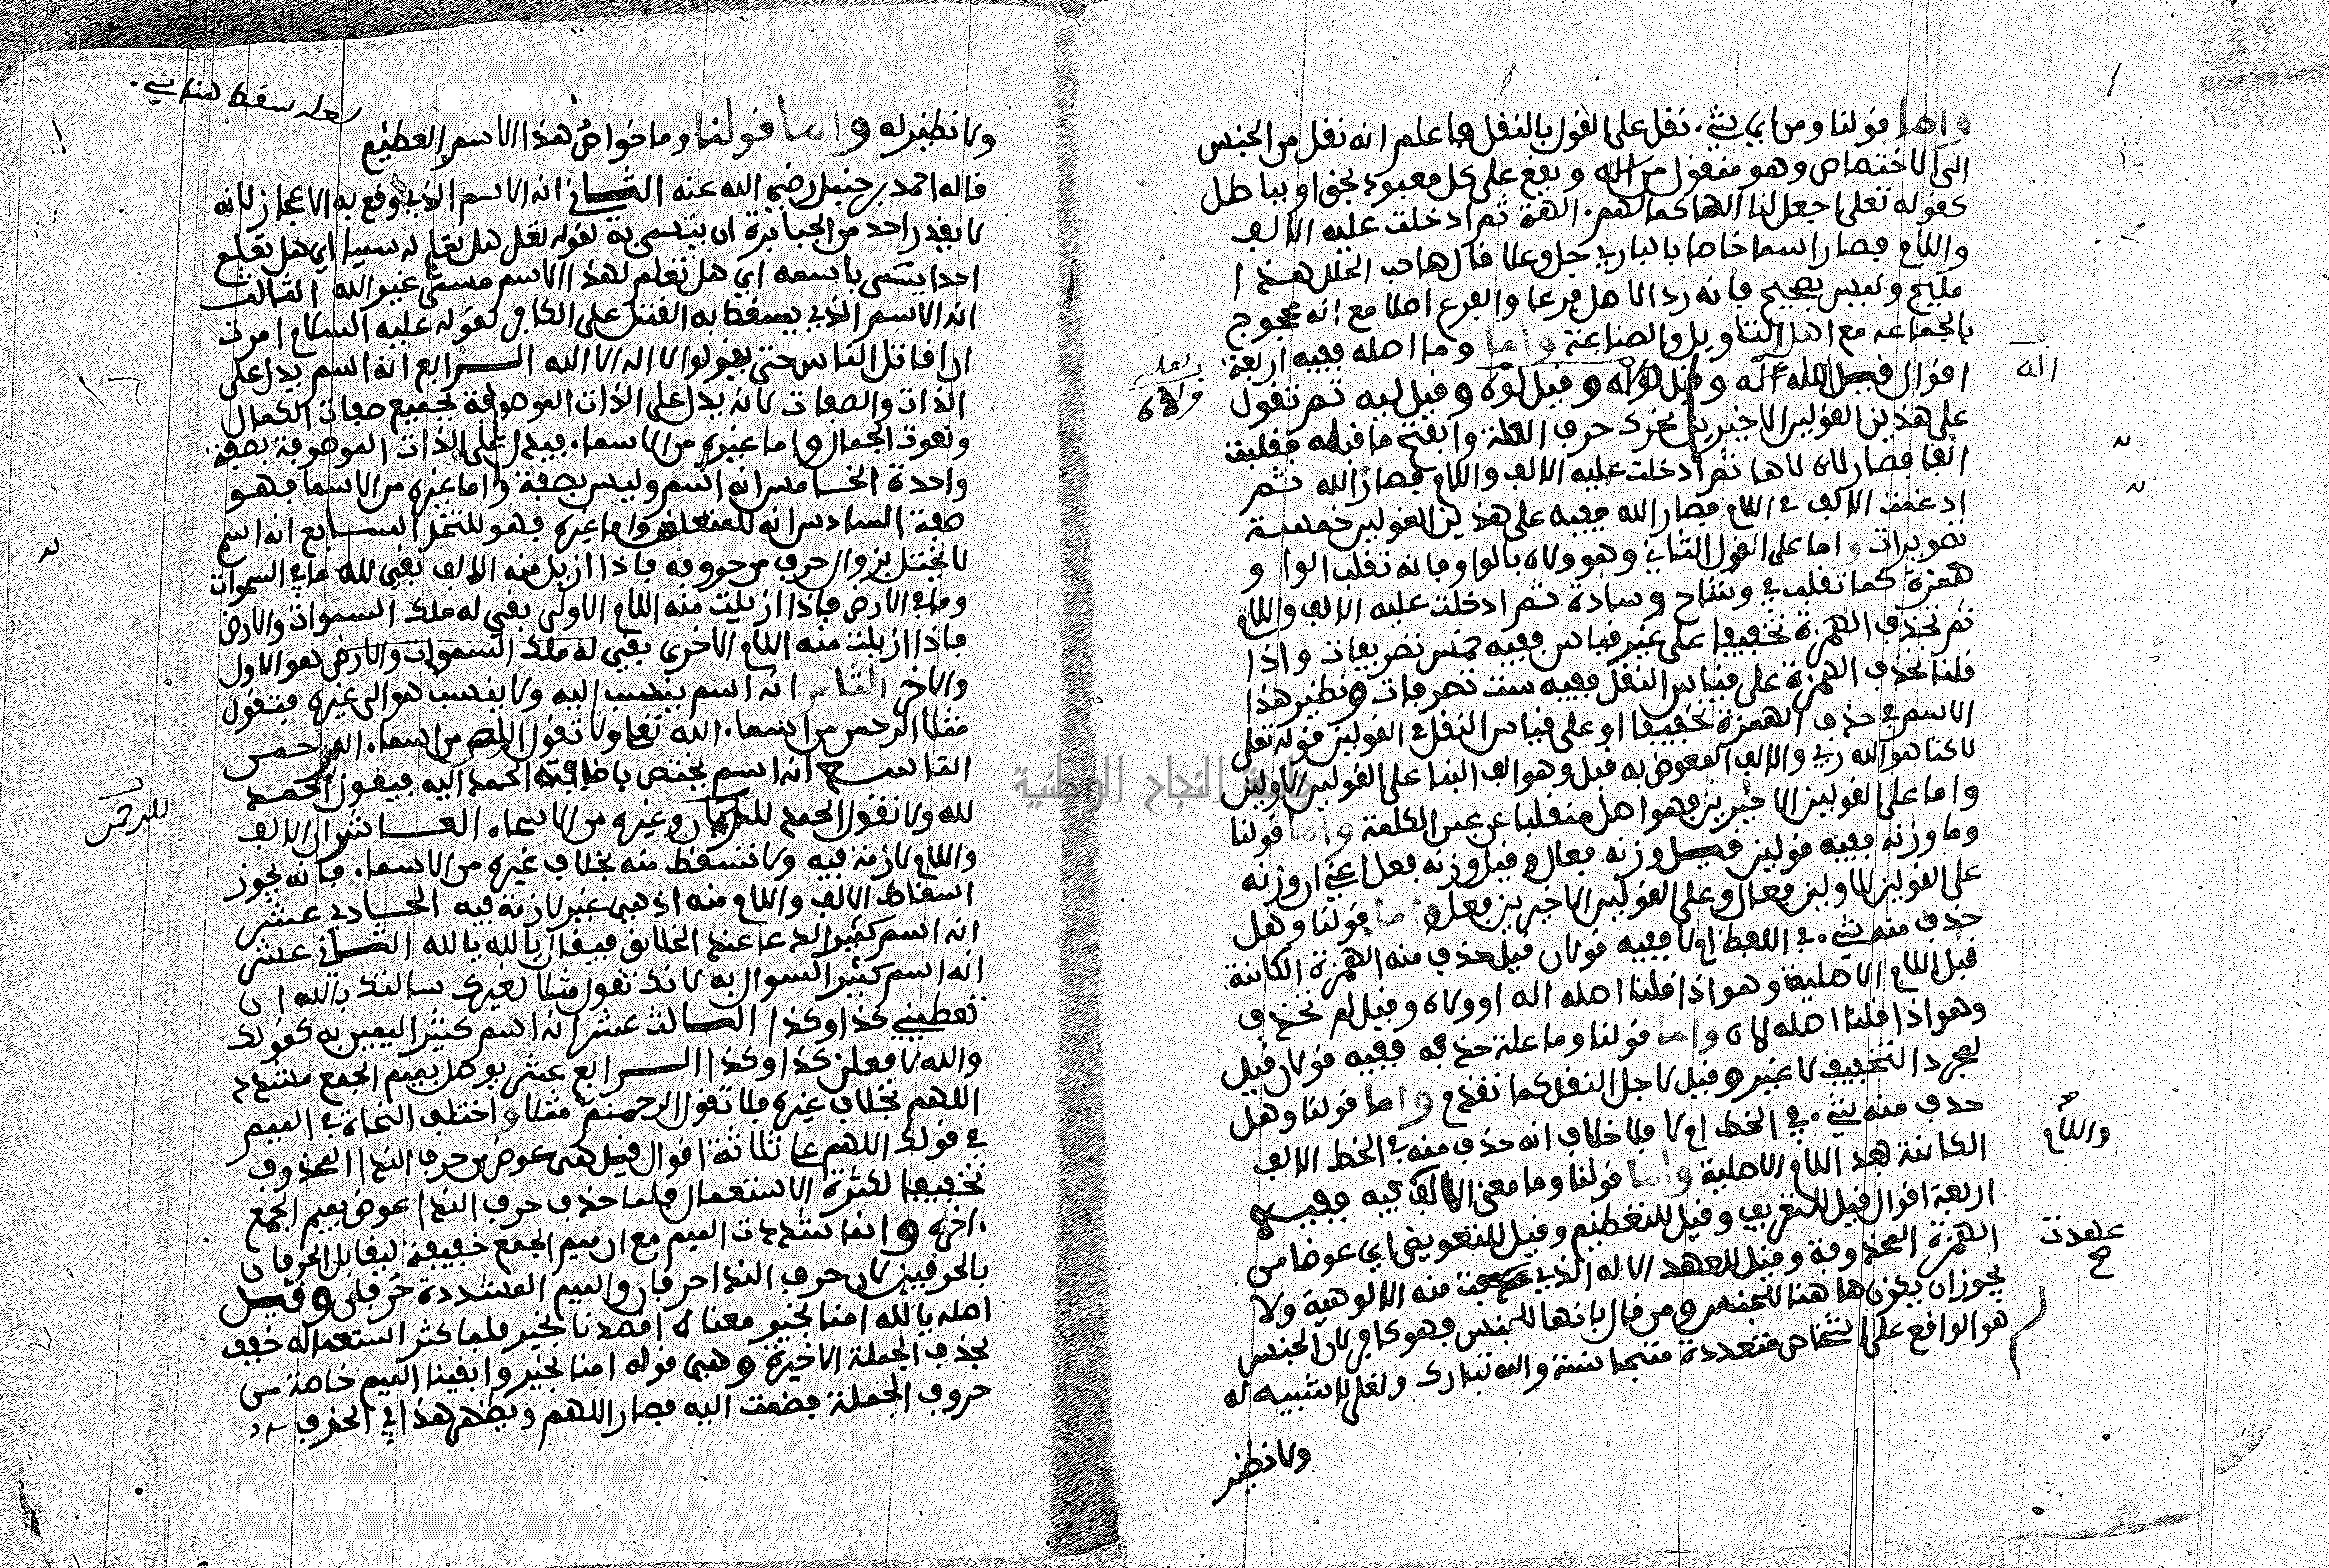 واما قولنا ومن اي شيء نقل على القول بالنقل فاعلم انه نقل من الجنس
الى الاختصاص وهو منقول من اله ويقع على كل معبود بحق او بباطل
كقوله تعلى اجعل لنا الها كما لهم ءالهة ثم ادخلت عليه الالف
واللام فصار اسما خاصا بالباري جل وعلا قال صاحب الحلل هذا
مليح وليس بصحيح فانه رد الاصل فرعا والفرع اصلا مع انه محجوج
بالجماعه مع اهل التاويل والصناعة واما وما اصله ففيه اربعة
اقوال قيل اله وقيل ولاه وقيل لوه وقيل ليه ثم تقول
على هذين القولين الاخيرين تحرك حرف العلة وانفتح ما قبله فقلبت
الفا فصار لاه لاها ثم ادخلت عليه الالف واللام فصار الله ثم
ادغمت الالف في اللام فصار الله ففيه على هذين القولين خمسة
تصريفات واما على القول الثاني وهو ولاه بالواو فانه تقلب الواو
همزة كما تقلب في وشاح وسادة ثم ادخلت عليه الالف واللام
ثم تحذف الهمزة تخفيفا على غير قياس ففيه خمس تصريفات واذا
قلنا بحذف الهمزة على قياس النقل ففيه ست تصرفات ونظير هذا
الاسم في حذف الهمزة تخفيفا او على قياس النقل في القولين قوله تعلى
لاكنا هو الله ربي والالف المعوض به قبل وهو الف البنا على القولين الاولين
واما على القولين الاخيرين فهو اصل منقلبا عن عين الكلمة واما قولنا
وما وزنه ففيه قولين قيل وزنه فعال وقيل وزنه فعل اعني ان وزنه
على القولين الاولين فعال وعلى القولين الاخيرين فعل واما قولنا وهل
حذف منه شيء في اللفظ ام لا ففيه قولان قيل حذف منه الهمزة الكائنة
قبل اللام الاصلية وهو اذا قلنا اصله اله او ولاه وقيل لم تحذف
وهو اذا قلنا اصله لاه واما قولنا وما علة حذفه ففيه قولان قيل
لمجرد التخفيف لا غير وقيل لاجل النقل كما تقدم واما قولنا وهل
حذف منه شيء في الخط ام لا فلا خلاف انه حذف منه في الخط الالف
الكائنة بعد اللام الاصلية واما قولنا وما معنى الالف فيه ففيه
اربعة اقوال قيل للتعريف وقيل للتعظيم وقيل للتعويض اي عوضا من
الهمزة المحذوفة وقيل للعهد الاله الذي منه الالوهية ولا
يجوز ان يكون هاهنا للجنس ومن قال بانها للجنس فهو كافر لان الجنس
هو الواقع على اشخاص متعددة متجانسة والله تبارك وتعلى لا شبيه له
ولا نظير
اله
تعلى
ولاه
واللام
عهدت
لعله سقط هنا شيء
ولا نظير له واما قولنا وما خواص هذا الاسم العظيم
قاله احمد بن حنبل رضي الله عنه الثاني انه الاسم الذي وقع به الاعجاز لانه
لا يقدر احد من الجبابرة ان يتسمى به لقوله تعلى هل تعلم له سميا اي هل تعلم
احدا يتسمى باسمه اي هل تعلم لهذا الاسم مسمى غير الله الثالث
انه الاسم الذي يسقط به القتل على الكافر لقوله عليه السلام امرت
ان اقاتل الناس حتى يقولوا لا اله الا الله الرابع انه اسم يدل على
الذات والصفات لانه يدل على الذات الموصوفة بجميع صفات الكمال
ونعوت الجمال واما غيره من الاسماء فيدل على الذات الموصوفة بصفة
واحدة الخامس انه اسم وليس بصفة واما غيره من الاسما فهو
صفة السادس انه للتعلق واما غيره فهو للتخلق السابع انه اسم
لا يختل بزوال حرف من حروفه فاذا ازيل منه الالف بقى لله ما في السموات
وما في الارض فاذا ازيلت منه اللام الاولى بقي له ملك السموات والارض
فاذا ازيلت منه اللام الاخرى بقي له ملك السموات والارض هو الاول
والاخر الثامن انه اسم ينسب اليه ولا ينسب هو الى غيره فتقول
مثلا الرحمن من اسماء الله تعلى ولا تقول الله من اسماء الرحمن
التاسع انه اسم يختص باضافة الحمد اليه فيقول الحمد
لله ولا تقول الحمد للرحمان وغيره من الاسماء العاشر ان الالف
واللام لازمة فيه ولا تسقط منه بخلاف غيره من الاسماء فانه يجوز
اسقاط الالف واللام منه اذ هي غير لازمة فيه الحادي عشر
انه اسم كثير الدعا عند الخلائق فيقال يا لله يا لله الثاني عشر
انه اسم كثير السوال به لانك تقول مثلا لغيرك سالتك بالله ان
تعطيني كذا وكذا الثالث عشر انه اسم كثير اليمين به كقولك
والله لافعلن كذا وكذا الرابع عشر يوصل بميم الجمع مشددة
اللهم بخلاف غيره فلا تقول الرحمنم مثلا واختلف النحاة في الميم
في قولك اللهم على ثلاثة اقوال قيل هي عوض من حرف الندا المحذوف
تخفيفا لكثرة الاستعمال فلما حذف حرف الندا عوض بميم الجمع
ءاخره وانما شددت الميم مع ان ميم الجمع خفيفة ليقابل الحرفان
بالحرفين لان حرف الندا حرفان والميم المشددة حرفان وقيل
اصله يا الله امنا بخير معناه اقصدنا بخير فلما كثر استعماله خفف
بحذف الجملة الاخيرة وهي قوله امنا بخير وابقينا الميم خاصة من
حروف الجملة فضمت اليه فصار اللهم ويظهر هذا في الحذف
للرحمن